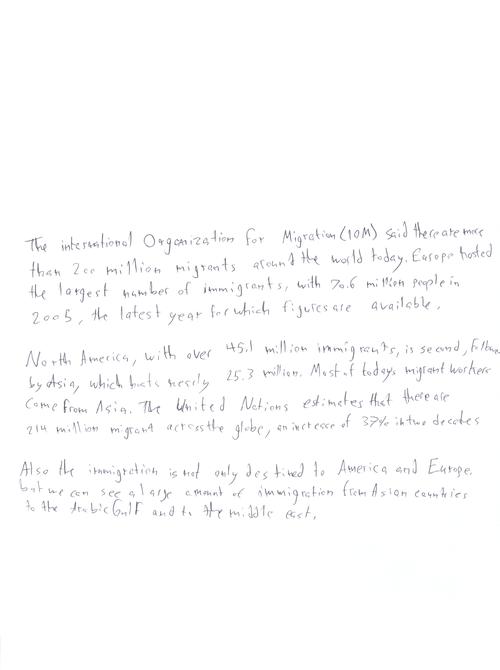 The international Organization for Migration (IOM) said there are more
than 200 million migrants around the world today. Europe hosted
the largest number of immigrants, with 70.6 million people in
2005, the latest year for which figures are available.
North America, with over 45.1 million immigrants, is second,
by Asia, which hosts nearly 25.3 million. Most of todays migrant workers
Come from Asia. The United Nations estimates that there are
214 million migrant across the globe, an increase of 37% in two decades
Also the immigration is not only destined to America and Europe.
but we can see a large amount of immigration from Asian countries
to the Arabic Gulf and to the middle east.